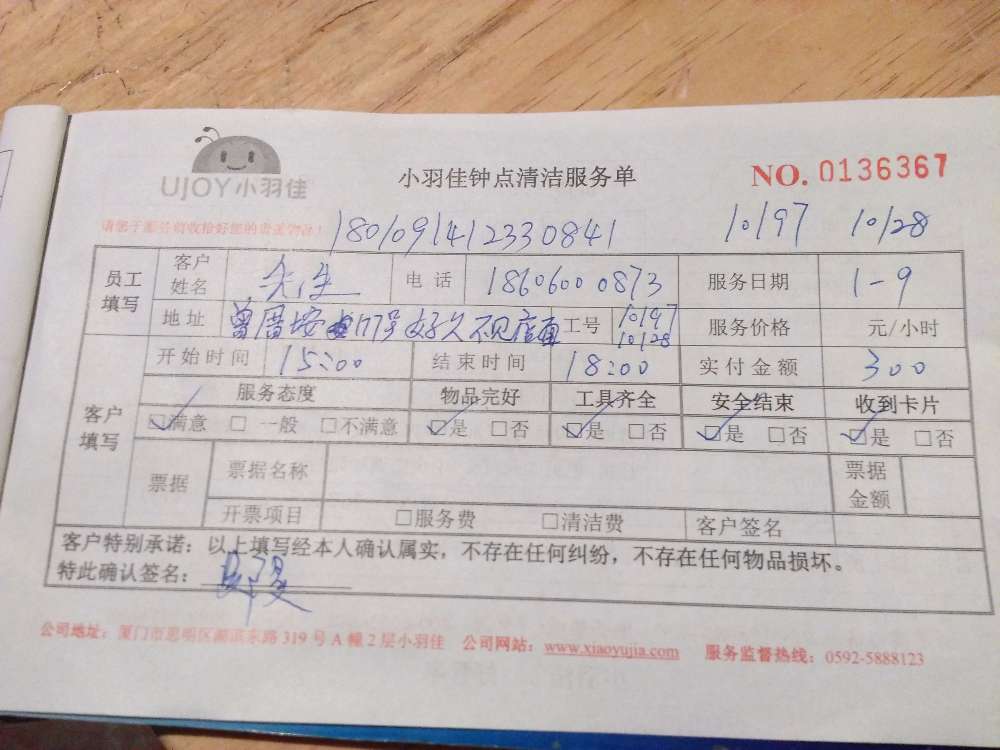 UJOY小羽佳
小羽佳钟点清洁服务单
NO. 0136367
1801091412330841 10197 10128
员工填写 客户姓名 先生 电话 18606000873 服务日期 1-9
地址 曾厝垵 117号好久不见店面 工号 10197 10128 服务价格 元/小时
客户填写 开始时间 15:00 结束时间 18:00 实付金额 300
服务态度 物品完好 工具齐全 安全结束 收到卡片
☑满意 □一般 □不满意 ☑是 □否 ☑是 □否 ☑是 □否 ☑是 □否
票据 票据名称 票据金额
开票项目 □服务费 □清洁费 客户签名
客户特别承诺：以上填写经本人确认属实，不存在任何纠纷，不存在任何物品损坏。
特此确认签名：
公司地址：厦门市思明区湖滨东路319号A幢2层小羽佳 公司网站：www.xiaoyujia.com 服务监督热线：0592-5888123